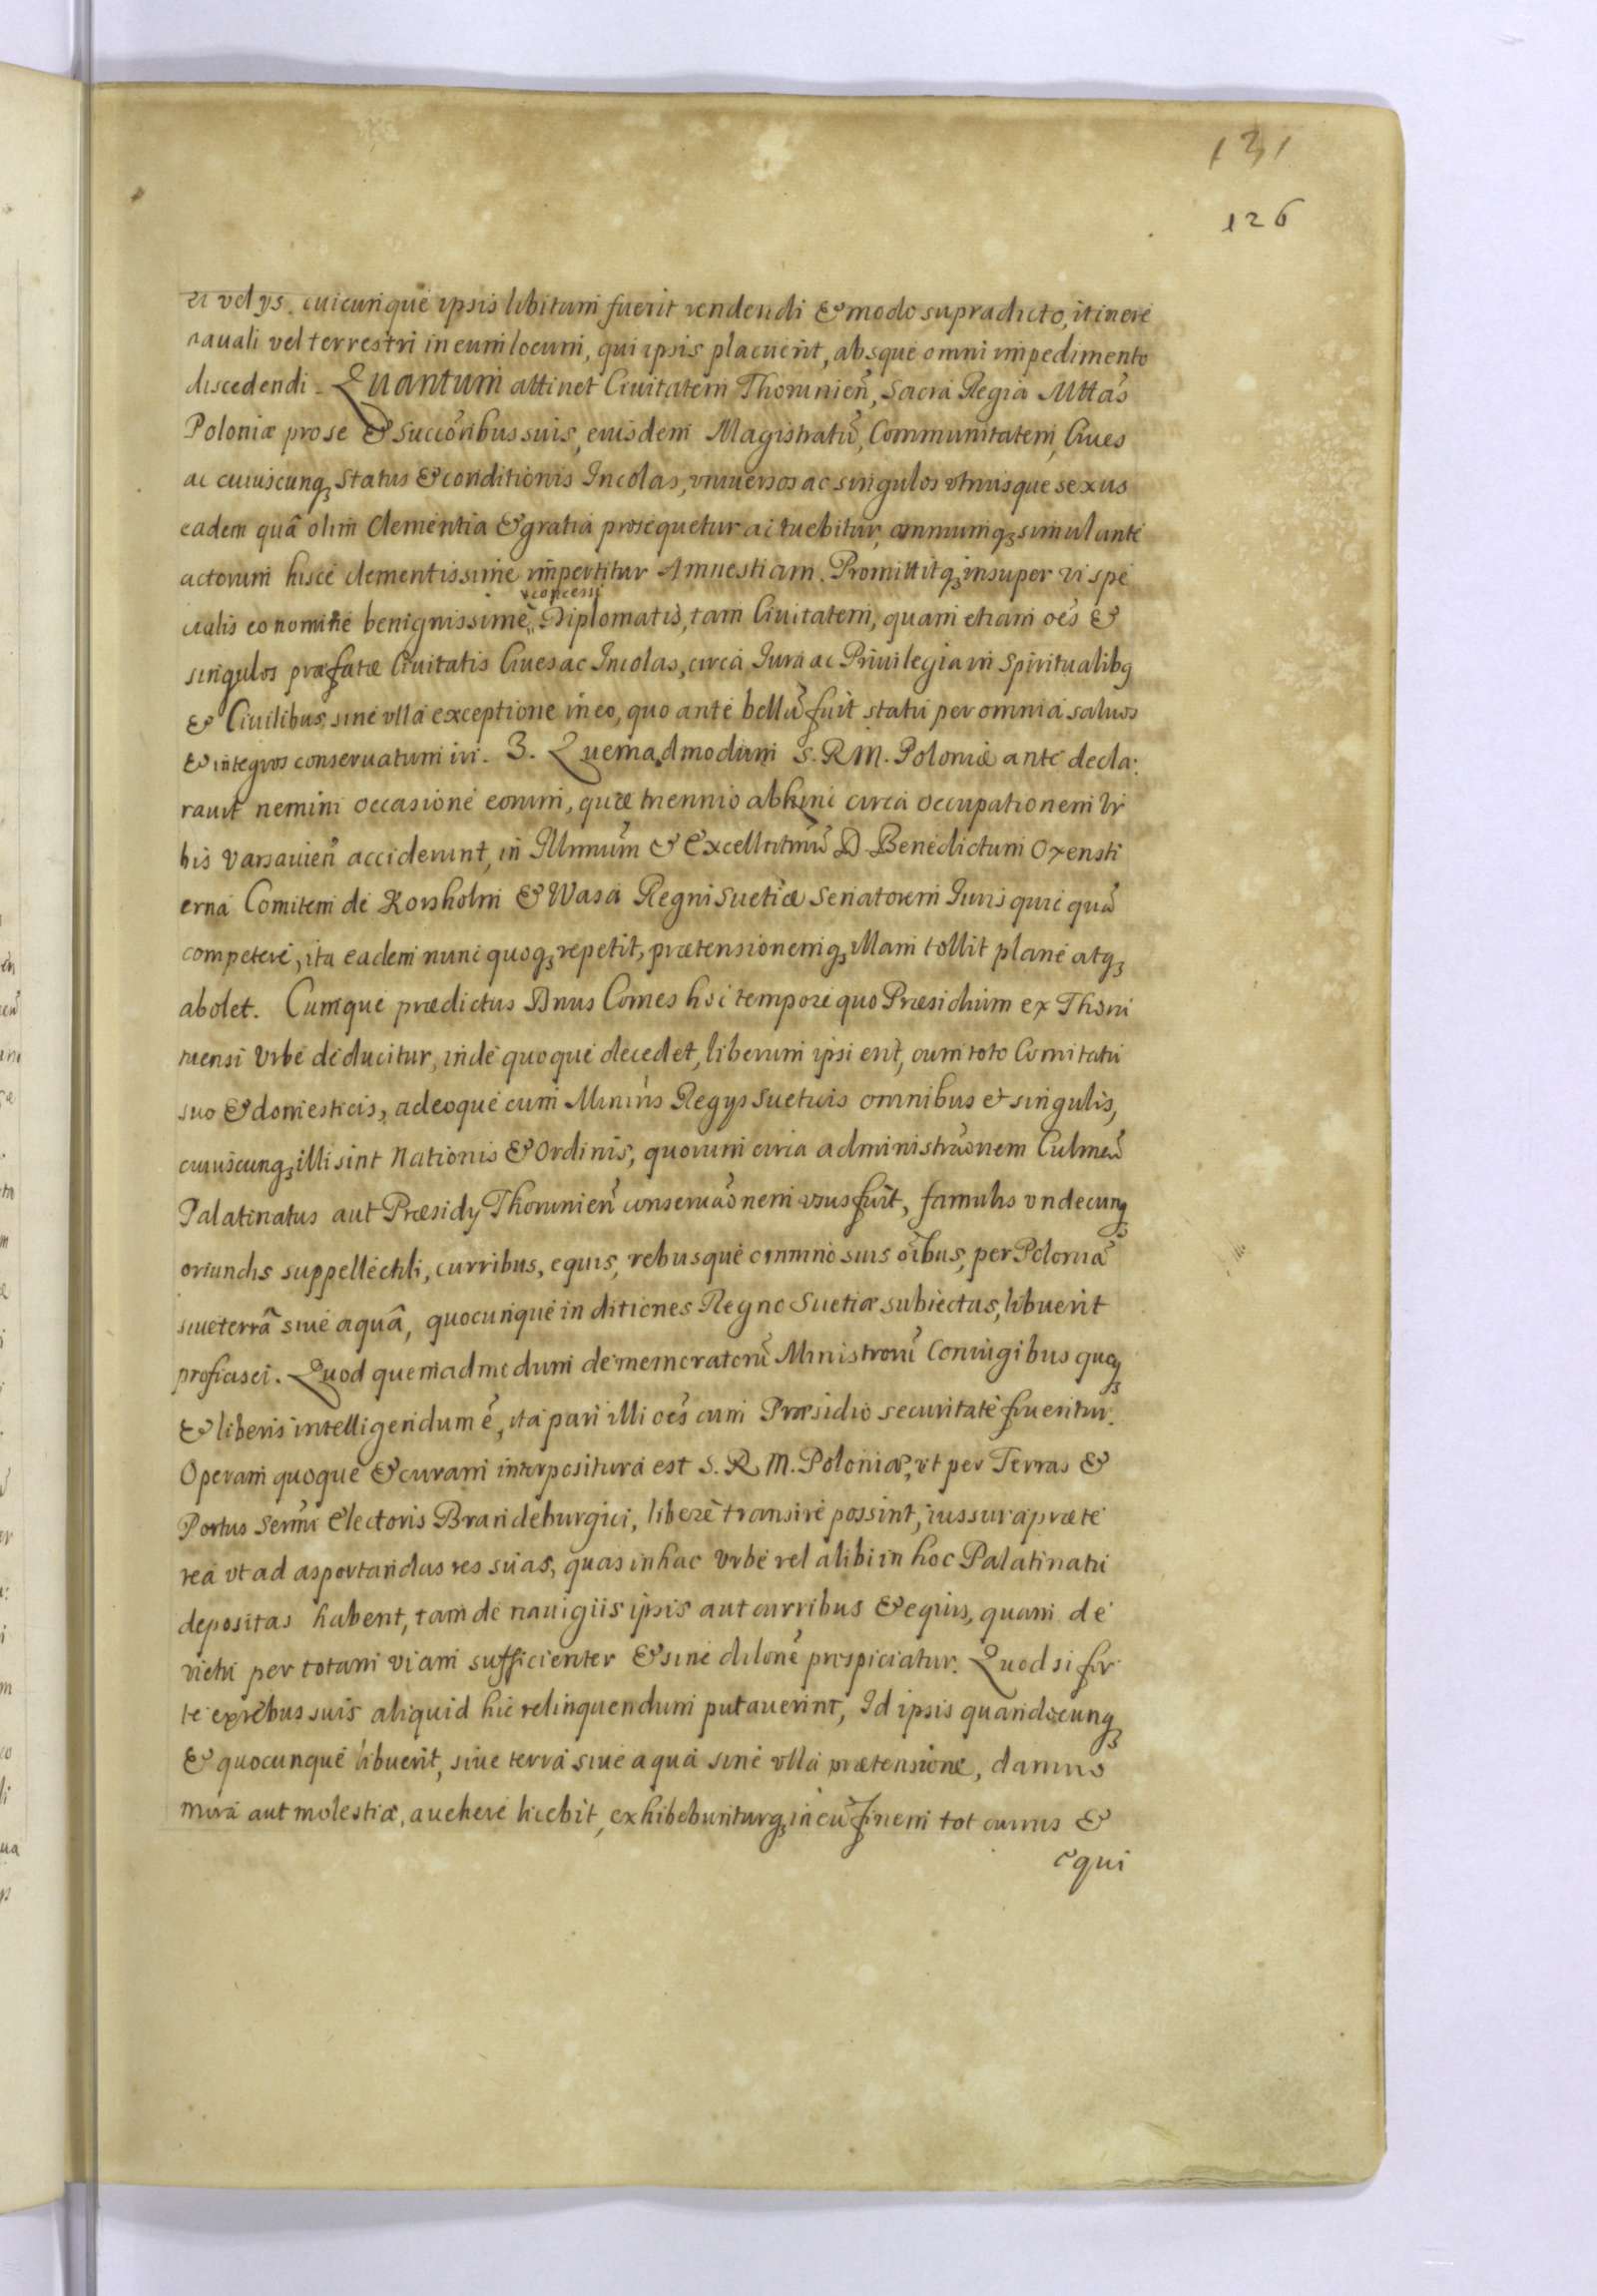 131
126
ei vel ijs cuicunque ipsis libitum fuerit vendendi & modo supradicto, itinere
nauali vel terrestri in eum locum, qui ipsis placuerit, absque omni impedimento
discedendi. Quantum attinet Ciuitatem Thorunien̄, Sacra Regia Mttas̄
Poloniæ pro se & Succōribus suis, eiusdem Magistratū, Communitatem, Ciues
ac cuiuscunq₃ status & conditionis Incolas, vniuersos ac singulos vtriusque sexus
eadem quâ olim Clementia & gratia prosequetur ac tuebitur, omniumq₃ simul ante
actorum hisce clementissime impertitur Amnestiam. Promittitq₃ insuper vi spe
concessi
cialis eo nomine benignissime Diplomatis, tam Ciuitatem, quam etiam oēs &
singulos præfatæ Ciuitatis Ciues ac Incolas, circa Iura ac Priuilegia in Spiritualibq
& Ciuilibus, sine vlla exceptione in eo, quo ante bellū fuit statu per omnia saluos
& integros conseruatum iri. 3. Quemadmodum S. R. M. Poloniæ ante decla:
rauit nemini occasione eorum, quæ triennio abhinc circa occupationem Vr
bis Varsauien̄ acciderunt, in Illmum̄ & Excellntmū D. Benedictum Oxensti
erna Comitem de Korsholm & Wasa Regni Suetiæ Senatorem Iuris quicquā
competere, ita eadem nunc quoq₃ repetit, prætensionemq₃ illam tollit plane atq₃
abolet. Cumque prædictus Dnus Comes hoc tempore quo Præsidium ex Thoru
niensi Vrbe deducitur, inde quoque decedet, liberum ipsi erit, cum toto Comitatu
suo & domesticis, adeoque cum Minīris Regijs Suetuis omnibus et singulis,
cuiuscunq₃ illi sint Nationis & Ordinis, quorum circa administrāōnem Culmen̄
Palatinatus aut Præsidij Thorunien̄ conseruāōnem vsus fuit, famulis vndecunq₃
oriundis suppellectili, curribus, equis, rebusque omnino suis oībus, per Poloniā
siue terrâ siue aquâ, quocunque in ditiones Regno Suetiæ subiectas, libuerit
proficisci. Quod quemadmodum de memoratorū Ministrorū Coniugibus quoq₃
& liberis intelligendum ē, ita pari illi oēs cum Præsidio securitate fruentur.
Operam quoque & curam interpositura est S. R. M. Poloniæ, vt per Terras &
Portus Sermi Electoris Brandeburgici, libere transire possint, iussura præte
rea vt ad asportandas res suas, quas in hac Vrbe vel alibi in hoc Palatinatu
depositas habent, tam de nauigiis ipsis aut curribus & equis, quam de
victu per totam viam sufficienter & sine dilōne prospiciatur. Quod si for
te ex rebus suis aliquid hic relinquendum putauerint, Id ipsis quandocunq₃
& quocunque libuerit, siue terrâ siue aquâ sine vlla prætensione, damno
mora aut molestia, auehere licebit, exhibebunturq₃ in eū finem tot currus &
equi